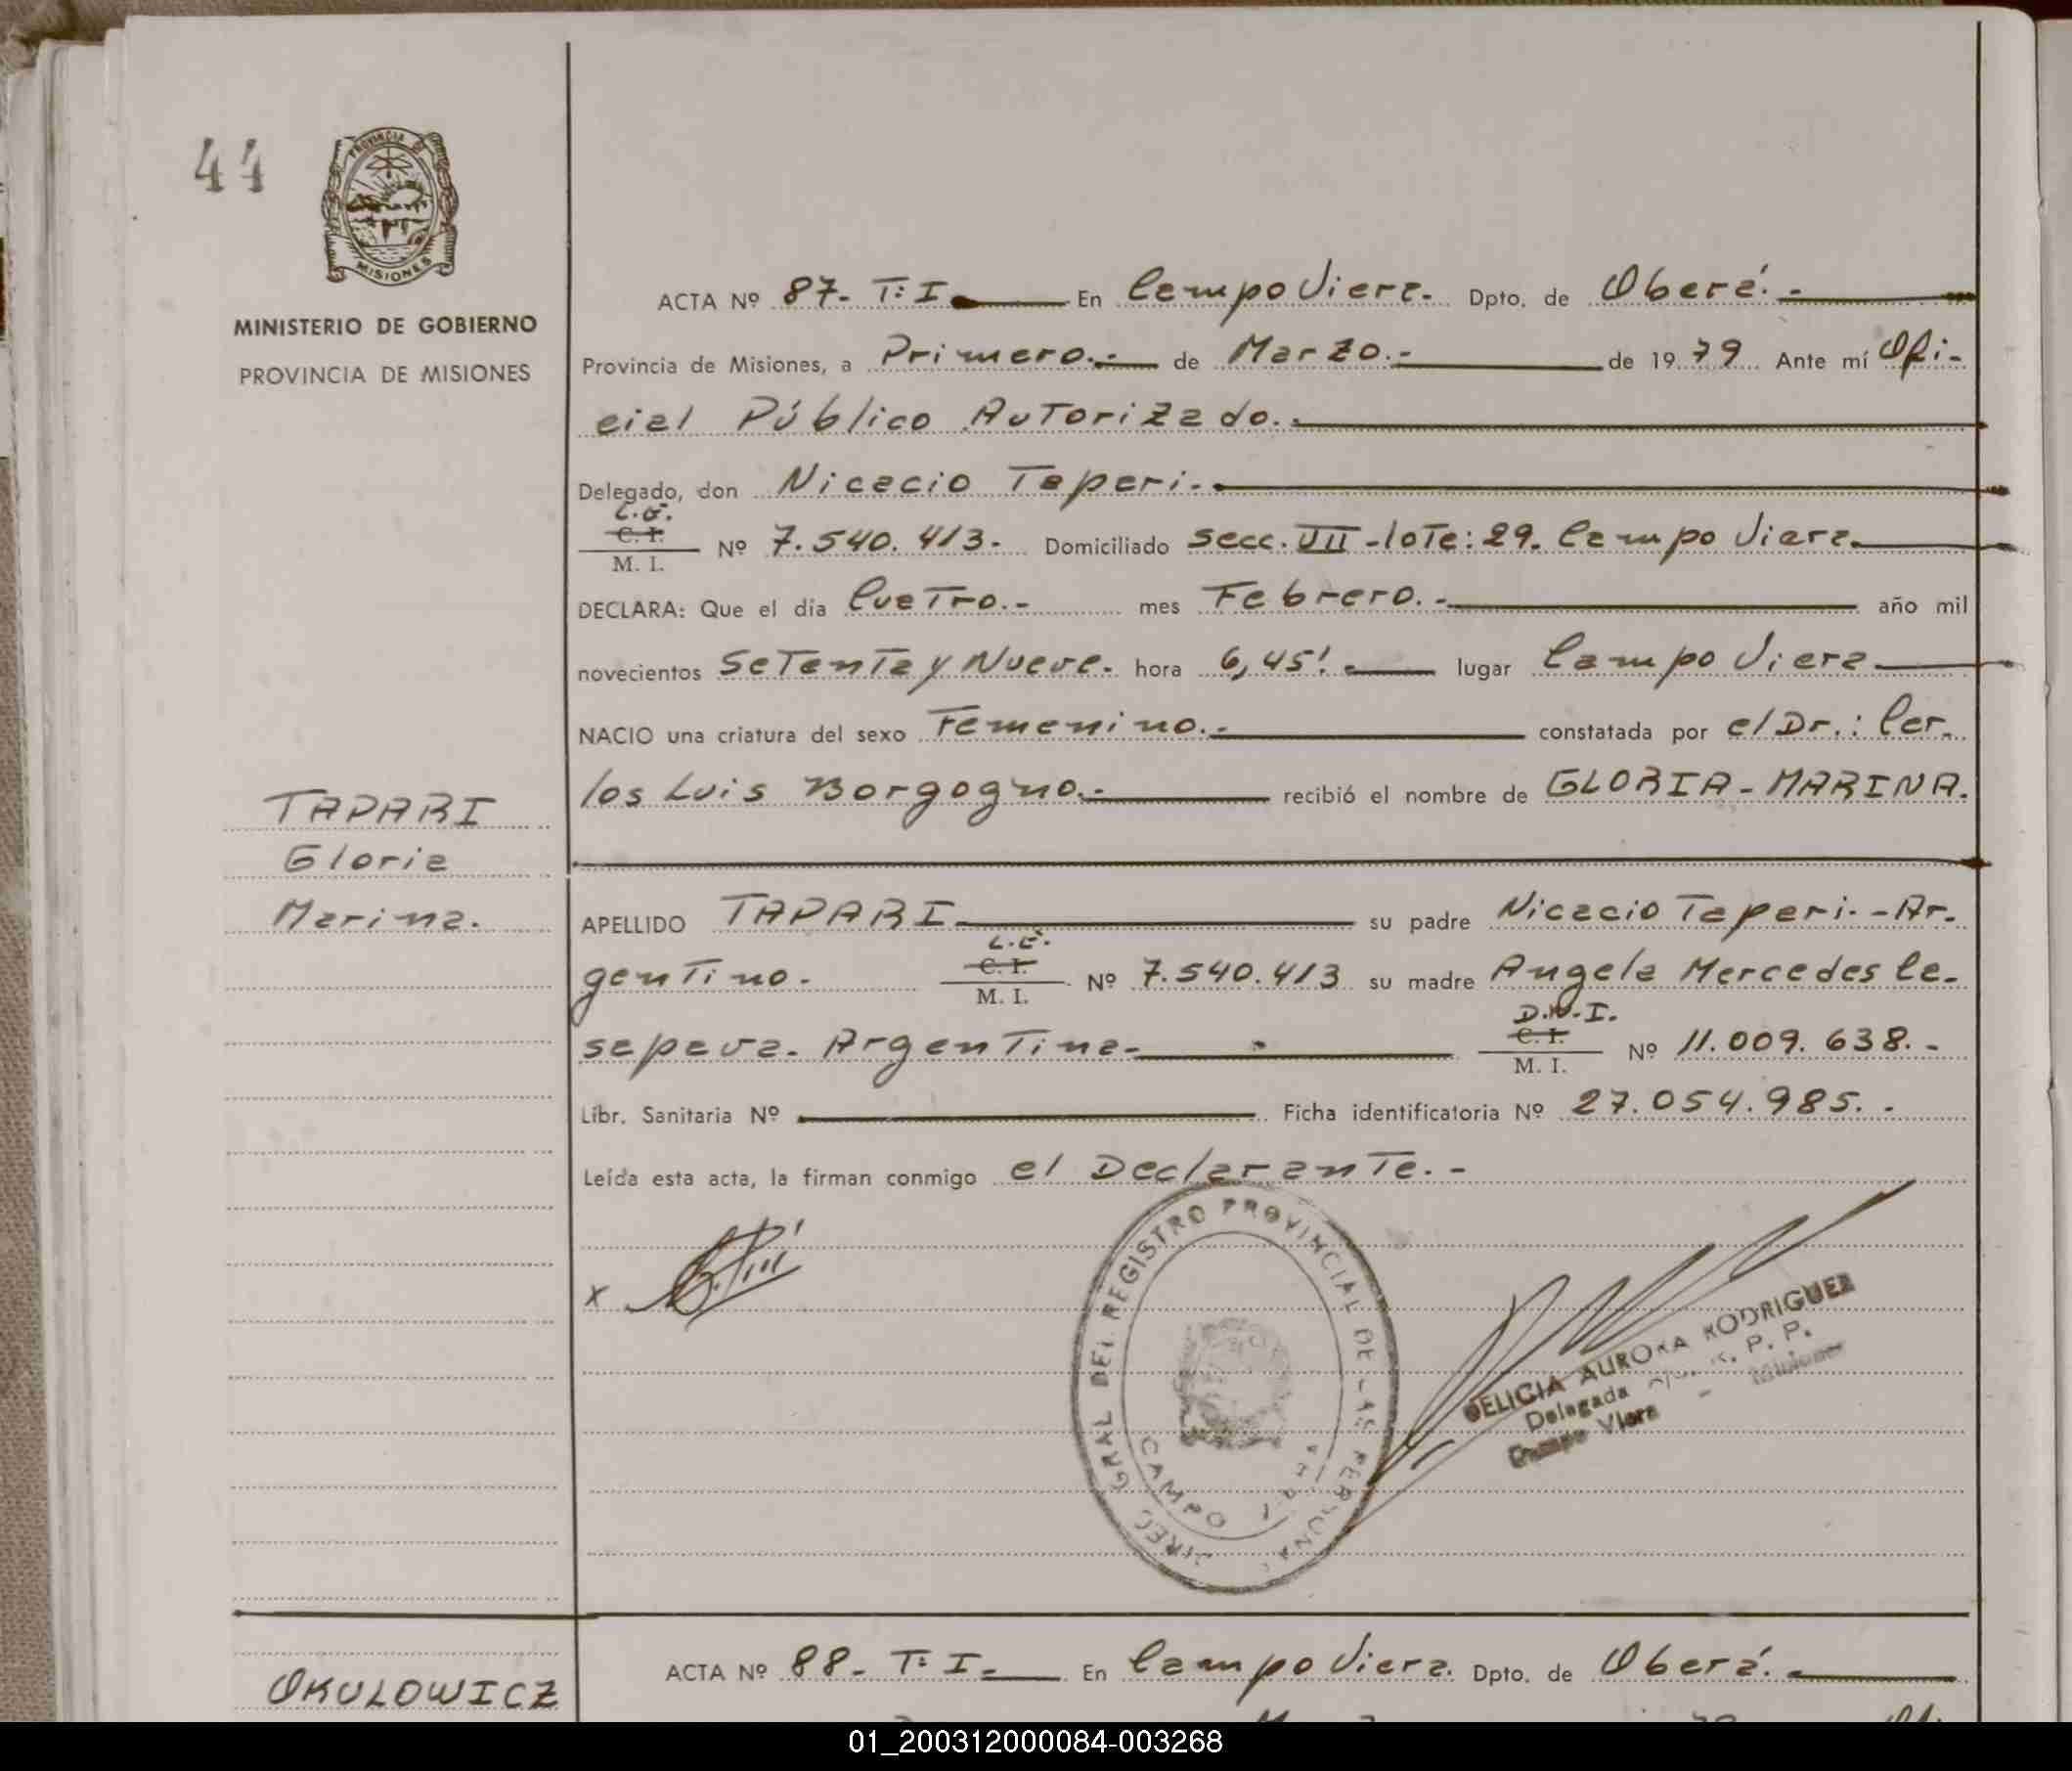 44
PROVINCIA D
MISIONES
MINISTERIO DE GOBIERNO
PROVINCIA DE MISIONES
ACTA Nº 87- T: I. En Campo Viera. Dpto. de Oberá.-
Provincia de Misiones, a Primero.- de Marzo.- de 1979 Ante mí Ofi-
cial Público Autorizado.-
Delegado, don Nicacio Tapari.-
L.E.
C. I.
M. I.
Nº 7.540.413- Domiciliado Secc. VII - lote: 29. Campo Viera.
DECLARA: Que el día Cuatro.- mes Febrero.- año mil
novecientos Setenta y Nueve. hora 6,45'.- lugar Campo Viera
NACIO una criatura del sexo Femenino.- constatada por el Dr.: Car-
los Luis Borgogno.- recibió el nombre de GLORIA-MARINA.
TAPARI
Gloria
Marina.
APELLIDO TAPARI. su padre Nicacio Tapari.- Ar-
L.E.
gentino. C. I.
M. I.
Nº 7.540.413 su madre Angela Mercedes Ca-
D.N.I.
sapava. Argentina.- C. I.
M. I.
Nº 11.009.638.-
Libr. Sanitaria Nº Ficha identificatoria Nº 27.054.985.-
Leída esta acta, la firman conmigo el Declarante.-
x
DIREC GRAL DEL REGISTRO PROVINCIAL DE LAS PERSONAS
CAMPO VIERA
DELICIA AURORA RODRIGUEZ
Delegada R. P. P.
Campo Viera - Misiones
ACTA Nº 88- T: I.- En Campo Viera. Dpto. de Oberá.-
OKULOWICZ
01_200312000084-003268